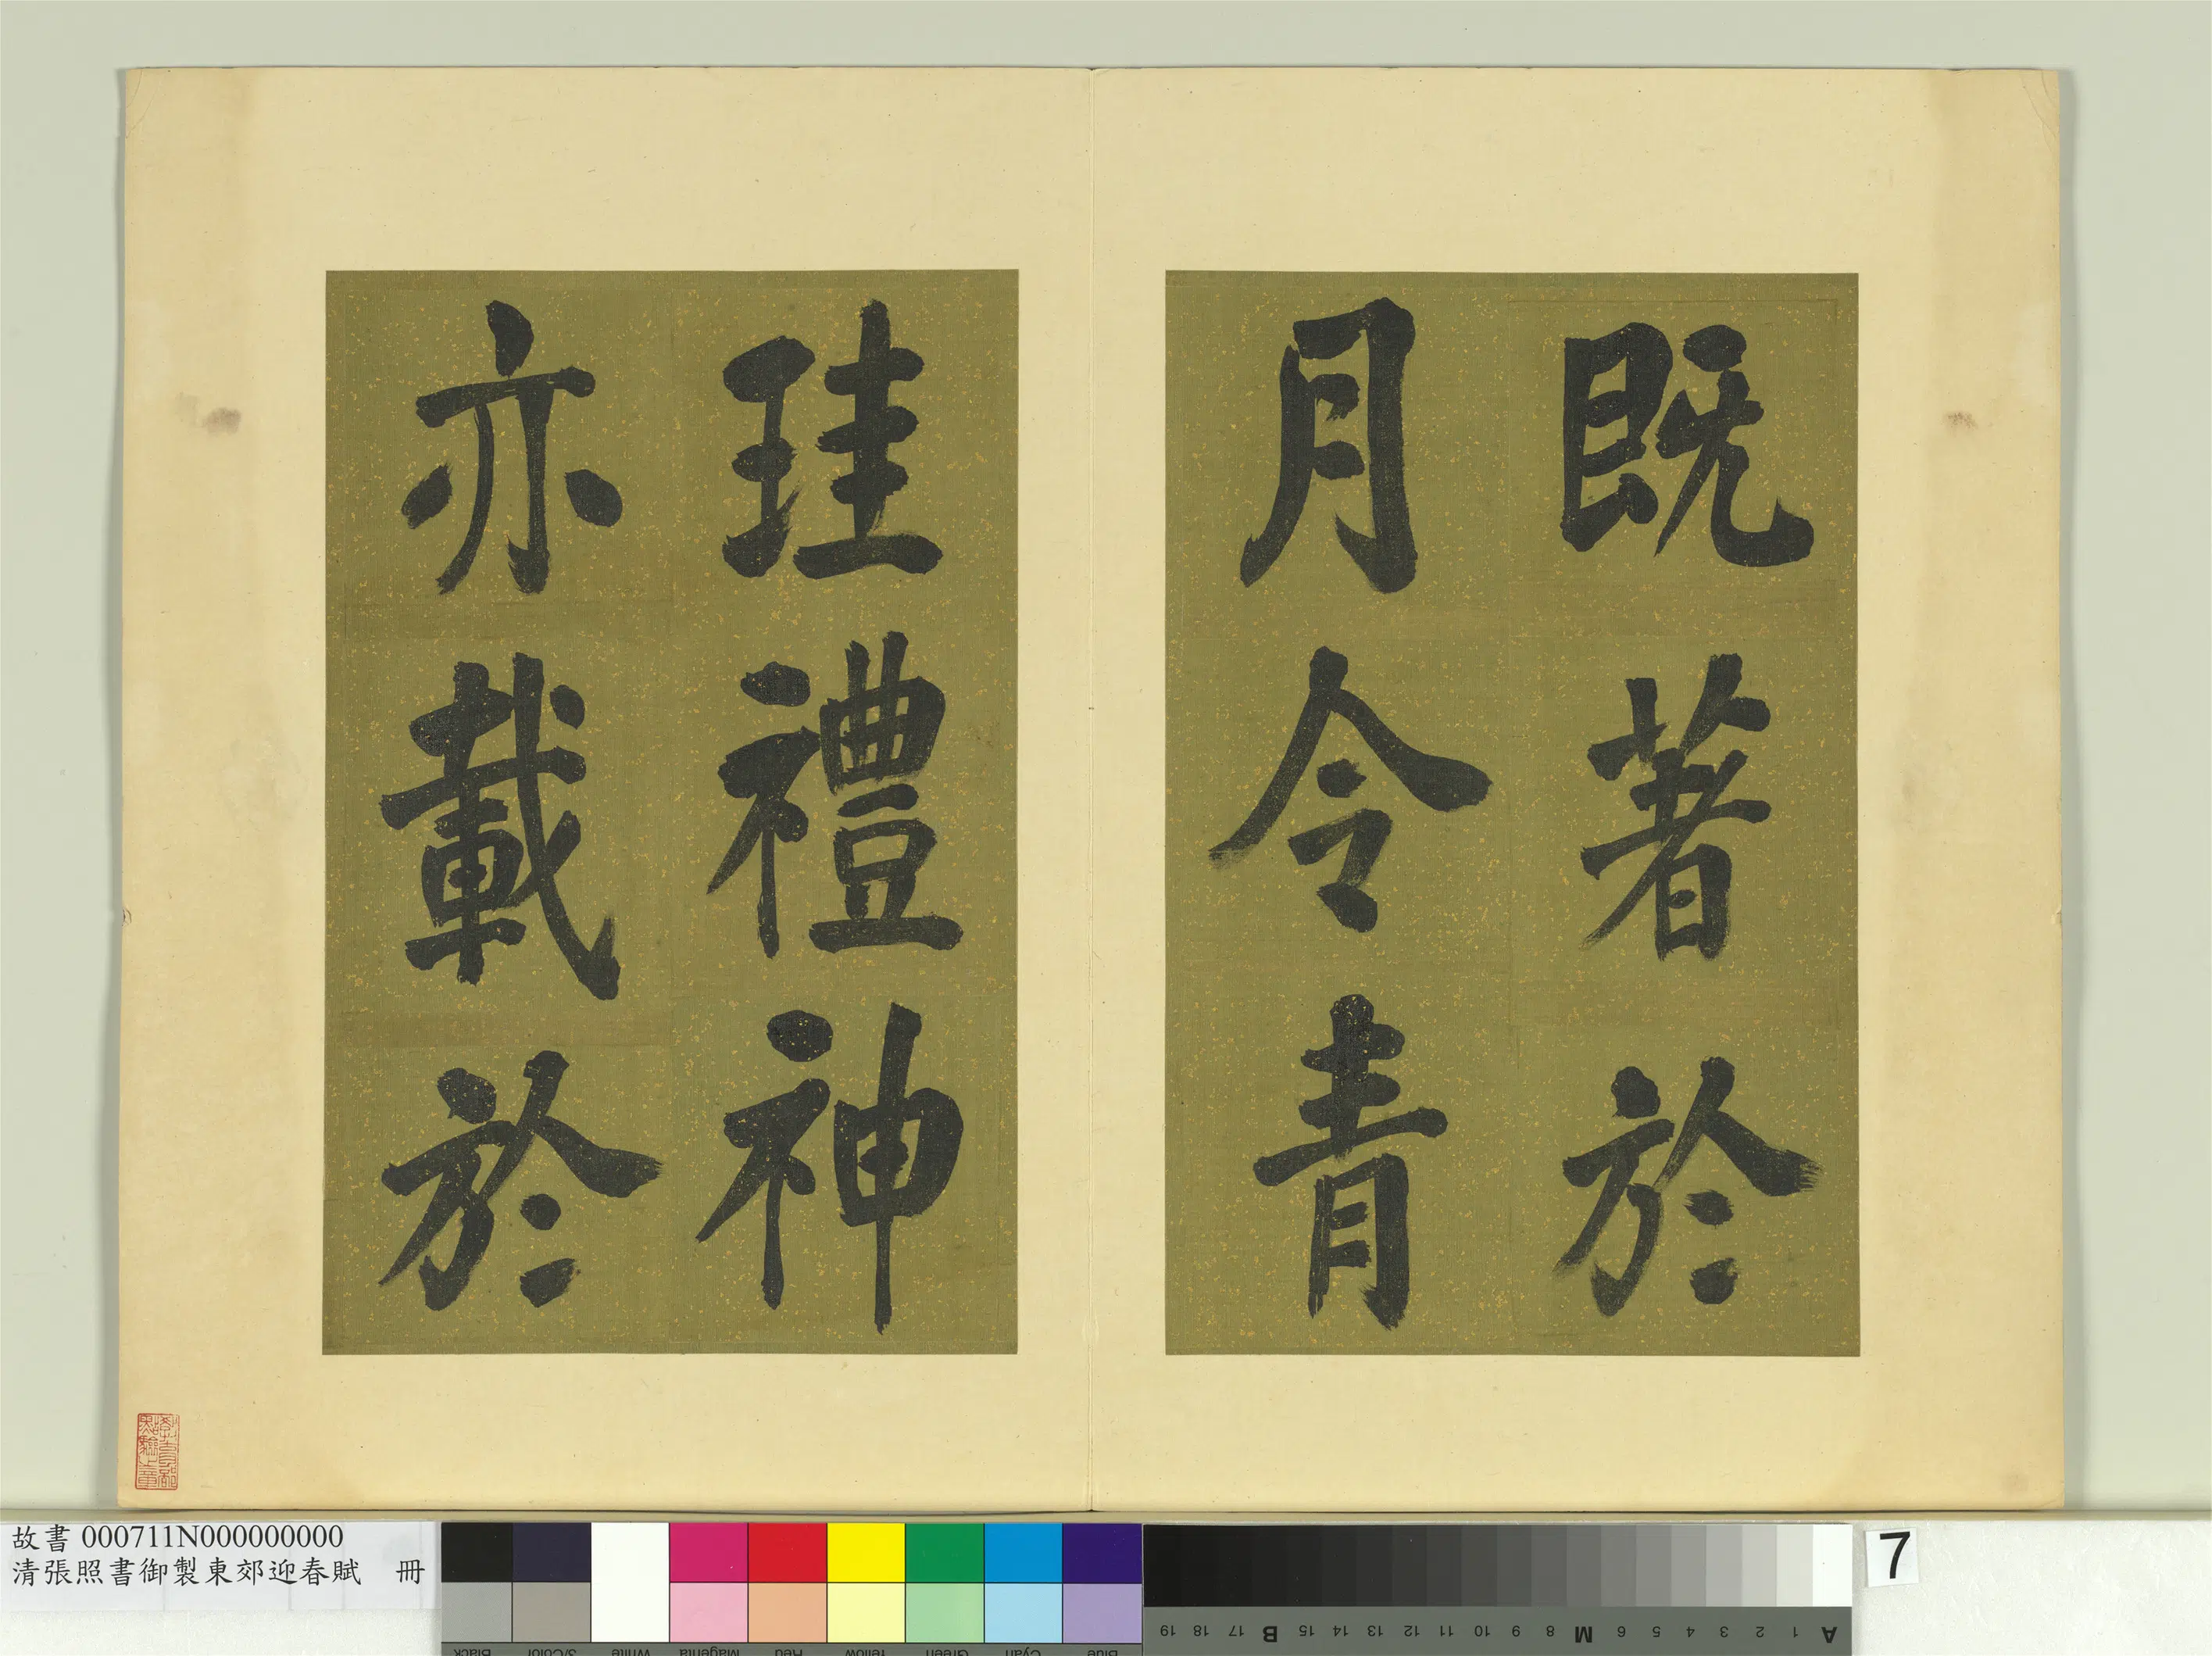 既著於
月令青
珪禮神
亦載於
故書 000711N000000000
清張照書御製東郊迎春賦 冊
7
Black 3/Color White Magenta Red Yellow Green Cyan Blue
A 1 2 3 4 5 6 M 8 9 10 11 12 13 14 15 B 17 18 19